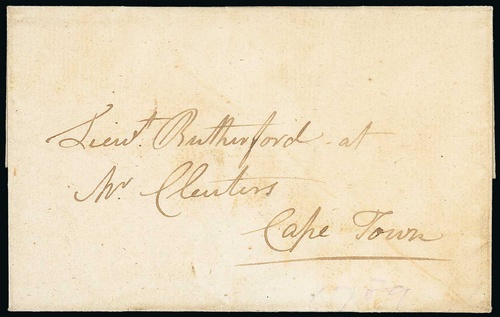 Lieut. Rutherford at
Mr Cleuters
Cape Town